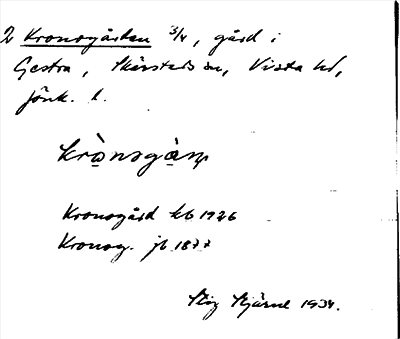 2 Kronogården 3/4, gård i
Gestra, Skärstads sn, Vista hd,
Jönk. l.
krònogàṇ
Kronogård kb 1926
Kronog. jb 1877
Stig Stjärne 1934.